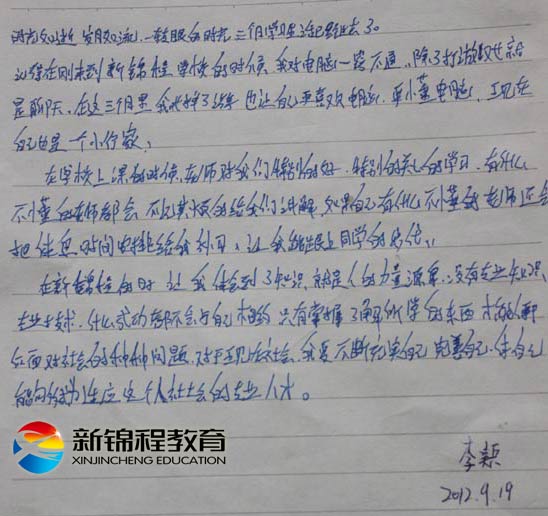 时光如逝 岁月如流,一转眼的时光 三个月学习生活已经过去了。
记得在刚来到新锦程学校的时候 我对电脑一窍不通,除了打游戏就
是聊天,在这三个月里 我 也让自己更喜欢电脑,更懂电脑,现在
自己也是一个小行家,
在学校上课的时候,老师对我们特别的好,特别的关心的学习,有什么
不懂的老师都会 不厌其烦的给我们讲解,如果自己有什么不懂的 老师还会
把休息时间安排给我补习,让我能跟上同学的步伐,
在新锦程的时 让我体会到了知识 就是人的力量源泉,没有专业知识,
专业技术,什么成功都不会与自己相约 只有掌握了解所学的东西 才能
去面对社会的种种问题,对于现在社会,我要不断充实自己 完善自己,使自己
能 为 社会的专业人才。
新锦程教育
XINJINCHENG EDUCATION
李颖
2012.9.19